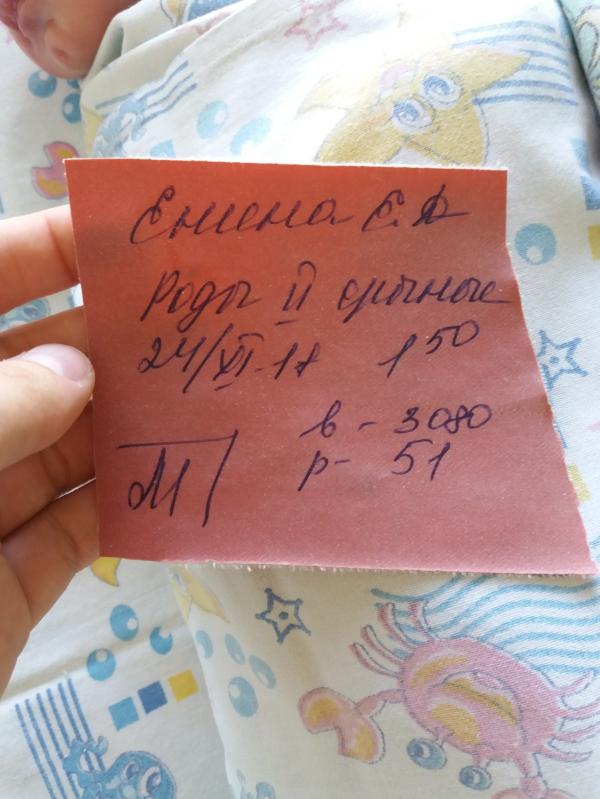 Енина Е.А
Роды II срочные
24/XI-17 1 50
в - 3080
р- 51
М